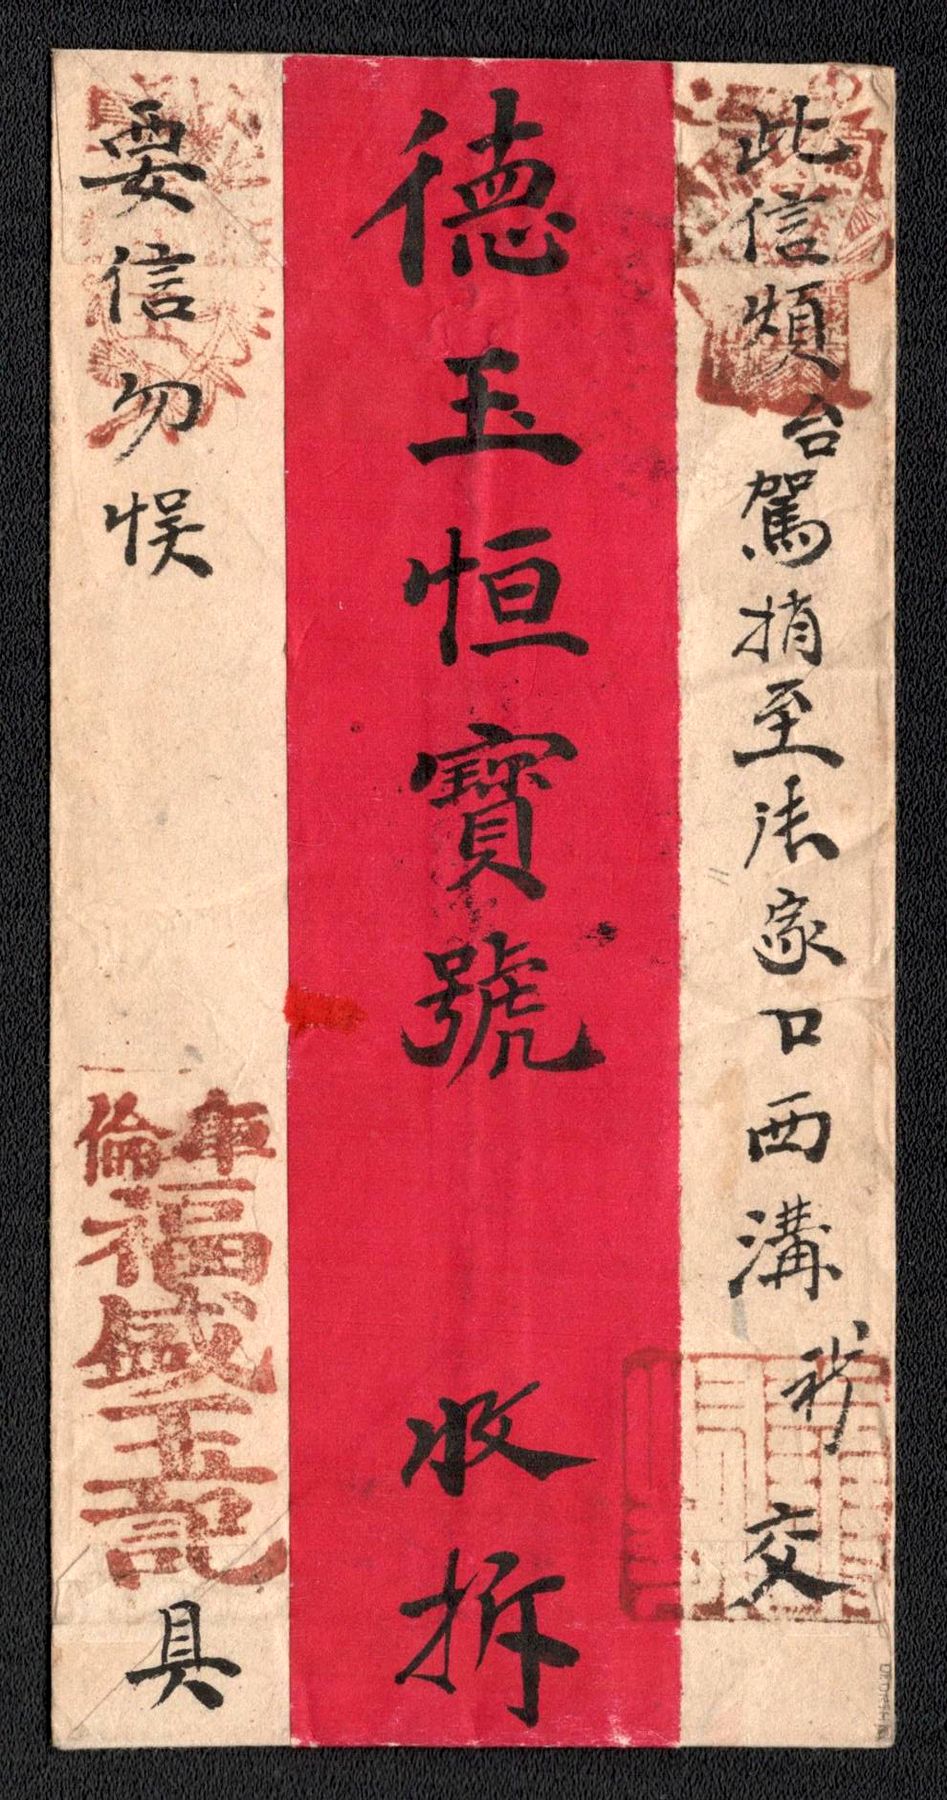 此信煩台駕捎至張家口西溝新交
德玉恒寶號 收拆
要信勿悮
車倫
福盛玉記
具